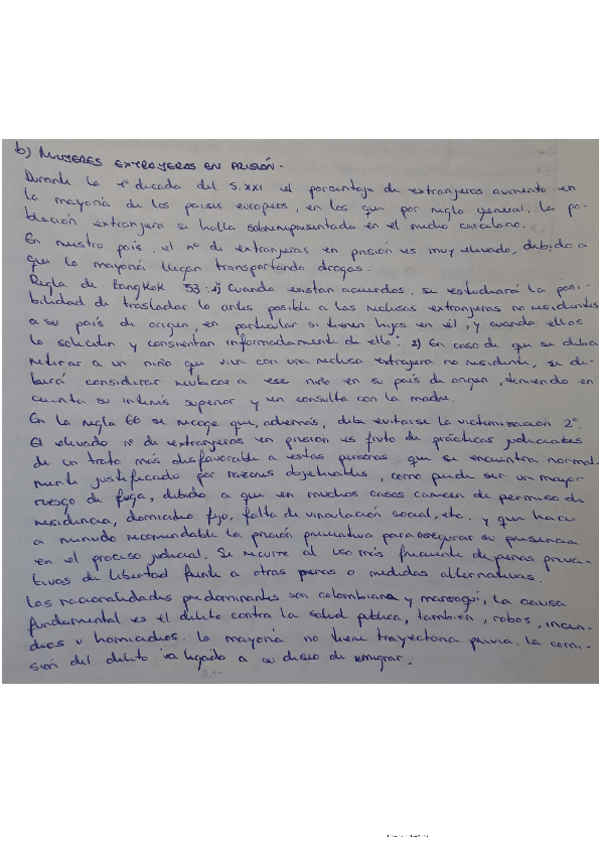 b) MUJERES EXTRANJERAS EN PRISIÓN.
Durante la 1ª decada del S. XXI el porcentaje de extranjeros aumento en
la mayoría de los países europeos, en los que por regla general, la po-
blación extranjera se halla sobrerrepresentada en el medio carcelario.
En nuestro país, el nº de extranjeras en prisión es muy elevado, debido a
que la mayoría llegan transportando drogas.
Regla de Bangkok 53: 1) Cuando existan acuerdos, se estudiará la posi-
bilidad de trasladar lo antes posible a las reclusas extranjeras no residentes
a su país de origen, en particular si tienen hijos en él, y cuando ellas
lo soliciten y consientan informadamente de ello. 2) En caso de que se deba
retirar a un niño que viva con una reclusa extranjera no residente, se de-
berá considerar reubicar a ese niño en su país de origen, teniendo en
cuenta su interés superior y en consulta con la madre.
En la regla 66 se recoge que, además, debe evitarse la victimización 2ª.
El elevado nº de extranjeras en prisión es fruto de prácticas judiciales
de un trato más desfavorable a estas personas que se encuentra normal-
mente justificado por razones objetivables, como puede ser un mayor
riesgo de fuga, debido a que en muchos casos carecen de permiso de
residencia, domicilio fijo, falta de vinculación social, etc. y que hace
a menudo recomendable la prisión preventiva para asegurar su presencia
en el proceso judicial. Se recurre al uso más frecuente de penas priva-
tivas de libertad frente a otras penas o medidas alternativas.
Las nacionalidades predominantes son colombiana y marroquí, la causa
fundamental es el delito contra la salud publica, también, robos, incen-
dios u homicidios. La mayoría no tiene trayectoria previa. La comi-
sión del delito va ligado a su deseo de emigrar.